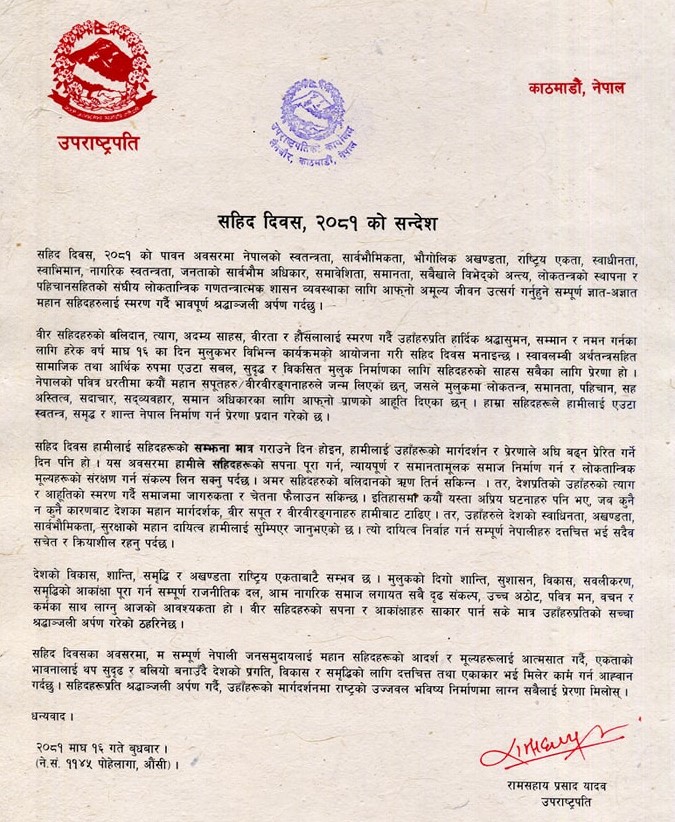 काठमाडौं, नेपाल
उपराष्ट्रपति
उपराष्ट्रपतिको कार्यालय
लैनचौर, काठमाडौं, नेपाल
सहिद दिवस, २०८१ को सन्देश
सहिद दिवस, २०८१ को पावन अवसरमा नेपालको स्वतन्त्रता, सार्वभौमिकता, भौगोलिक अखण्डता, राष्ट्रिय एकता, स्वाधीनता,
स्वाभिमान, नागरिक स्वतन्त्रता, जनताको सार्वभौम अधिकार, समावेशिता, समानता, सबैखाले विभेद्को अन्त्य, लोकतन्त्रको स्थापना र
पहिचानसहितको संघीय लोकतान्त्रिक गणतन्त्रात्मक शासन व्यवस्थाका लागि आफ्नो अमूल्य जीवन उत्सर्ग गर्नुहुने सम्पूर्ण ज्ञात-अज्ञात
महान सहिदहरुलाई स्मरण गर्दै भावपूर्ण श्रद्धाञ्जली अर्पण गर्दछु ।
वीर सहिदहरुको बलिदान, त्याग, अदम्य साहस, वीरता र हौसलालाई स्मरण गर्दै उहाँहरुप्रति हार्दिक श्रद्धासुमन, सम्मान र नमन गर्नका
लागि हरेक वर्ष माघ १६ का दिन मुलुकभर विभिन्न कार्यक्रमको आयोजना गरी सहिद दिवस मनाइन्छ । स्वावलम्वी अर्थतन्त्रसहित
सामाजिक तथा आर्थिक रुपमा एउटा सबल, सुदृढ र विकसित मुलुक निर्माणका लागि सहिदहरुको साहस सबैका लागि प्रेरणा हो ।
नेपालको पवित्र धरतीमा कयौं महान सपूतहरु/वीरवीरङ्गनाहरुले जन्म लिएका छन्, जसले मुलुकमा लोकतन्त्र, समानता, पहिचान, सह
अस्तित्व, सदाचार, सद्व्यवहार, समान अधिकारका लागि आफ्नो प्राणको आहूति दिएका छन् । हाम्रा सहिदहरूले हामीलाई एउटा
स्वतन्त्र, समृद्ध र शान्त नेपाल निर्माण गर्न प्रेरणा प्रदान गरेको छ ।
सहिद दिवस हामीलाई सहिदहरूको सम्झना मात्र गराउने दिन होइन, हामीलाई उहाँहरूको मार्गदर्शन र प्रेरणाले अघि बढ्न प्रेरित गर्ने
दिन पनि हो । यस अवसरमा हामीले सहिदहरूको सपना पूरा गर्न, न्यायपूर्ण र समानतामूलक समाज निर्माण गर्न र लोकतान्त्रिक
मूल्यहरूको संरक्षण गर्न संकल्प लिन सक्नु पर्दछ । अमर सहिदहरुको बलिदानको ऋण तिर्न सकिन्न । तर, देशप्रतिको उहाँहरुको त्याग
र आहूतिको स्मरण गर्दै समाजमा जागरुकता र चेतना फैलाउन सकिन्छ । इतिहासमा कयौं यस्ता अप्रिय घटनाहरु पनि भए, जब कुनै
न कुनै कारणबाट देशका महान मार्गदर्शक, वीर सपूत र वीरवीरङ्गनाहरु हामीबाट टाढिए । तर, उहाँहरुले देशको स्वाधिनता, अखण्डता,
सार्वभौमिकता, सुरक्षाको महान दायित्व हामीलाई सुम्पिएर जानुभएको छ । त्यो दायित्व निर्वाह गर्न सम्पूर्ण नेपालीहरु दत्तचित्त भई सदैव
सचेत र क्रियाशील रहनु पर्दछ ।
देशको विकास, शान्ति, समृद्धि र अखण्डता राष्ट्रिय एकताबाटै सम्भव छ । मुलुकको दिगो शान्ति, सुशासन, विकास, सवलीकरण,
समृद्धिको आकांक्षा पूरा गर्न सम्पूर्ण राजनीतिक दल, आम नागरिक समाज लगायत सबै दृढ संकल्प, उच्च अठोट, पवित्र मन, वचन र
कर्मका साथ लाग्नु आजको आवश्यकता हो । वीर सहिदहरुको सपना र आकांक्षाहरु साकार पार्न सके मात्र उहाँहरुप्रतिको सच्चा
श्रद्धाञ्जली अर्पण गरेको ठहरिनेछ ।
सहिद दिवसका अवसरमा, म सम्पूर्ण नेपाली जनसमुदायलाई महान सहिदहरूको आदर्श र मूल्यहरूलाई आत्मसात गर्दै, एकताको
भावनालाई थप सुदृढ र बलियो बनाउँदै देशको प्रगति, विकास र समृद्धिको लागि दत्तचित्त तथा एकाकार भई मिलेर काम गर्न आह्वान
गर्दछु । सहिदहरूप्रति श्रद्धाञ्जली अर्पण गर्दै, उहाँहरूको मार्गदर्शनमा राष्ट्रको उज्जवल भविष्य निर्माणमा लाग्न सबैलाई प्रेरणा मिलोस् ।
धन्यवाद ।
२०८१ माघ १६ गते बुधबार ।
(ने.सं. ११४५ पोहेलागा, औंसी) ।
रामसहाय प्रसाद यादव
उपराष्ट्रपति